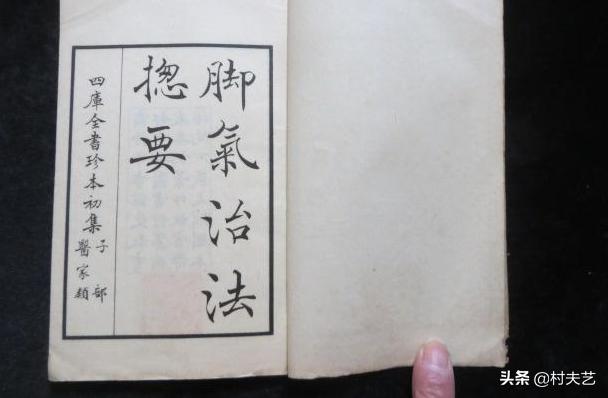 脚氣治法
揔要
四庫全書珍本初集 子部
醫家類
头条 @村夫艺